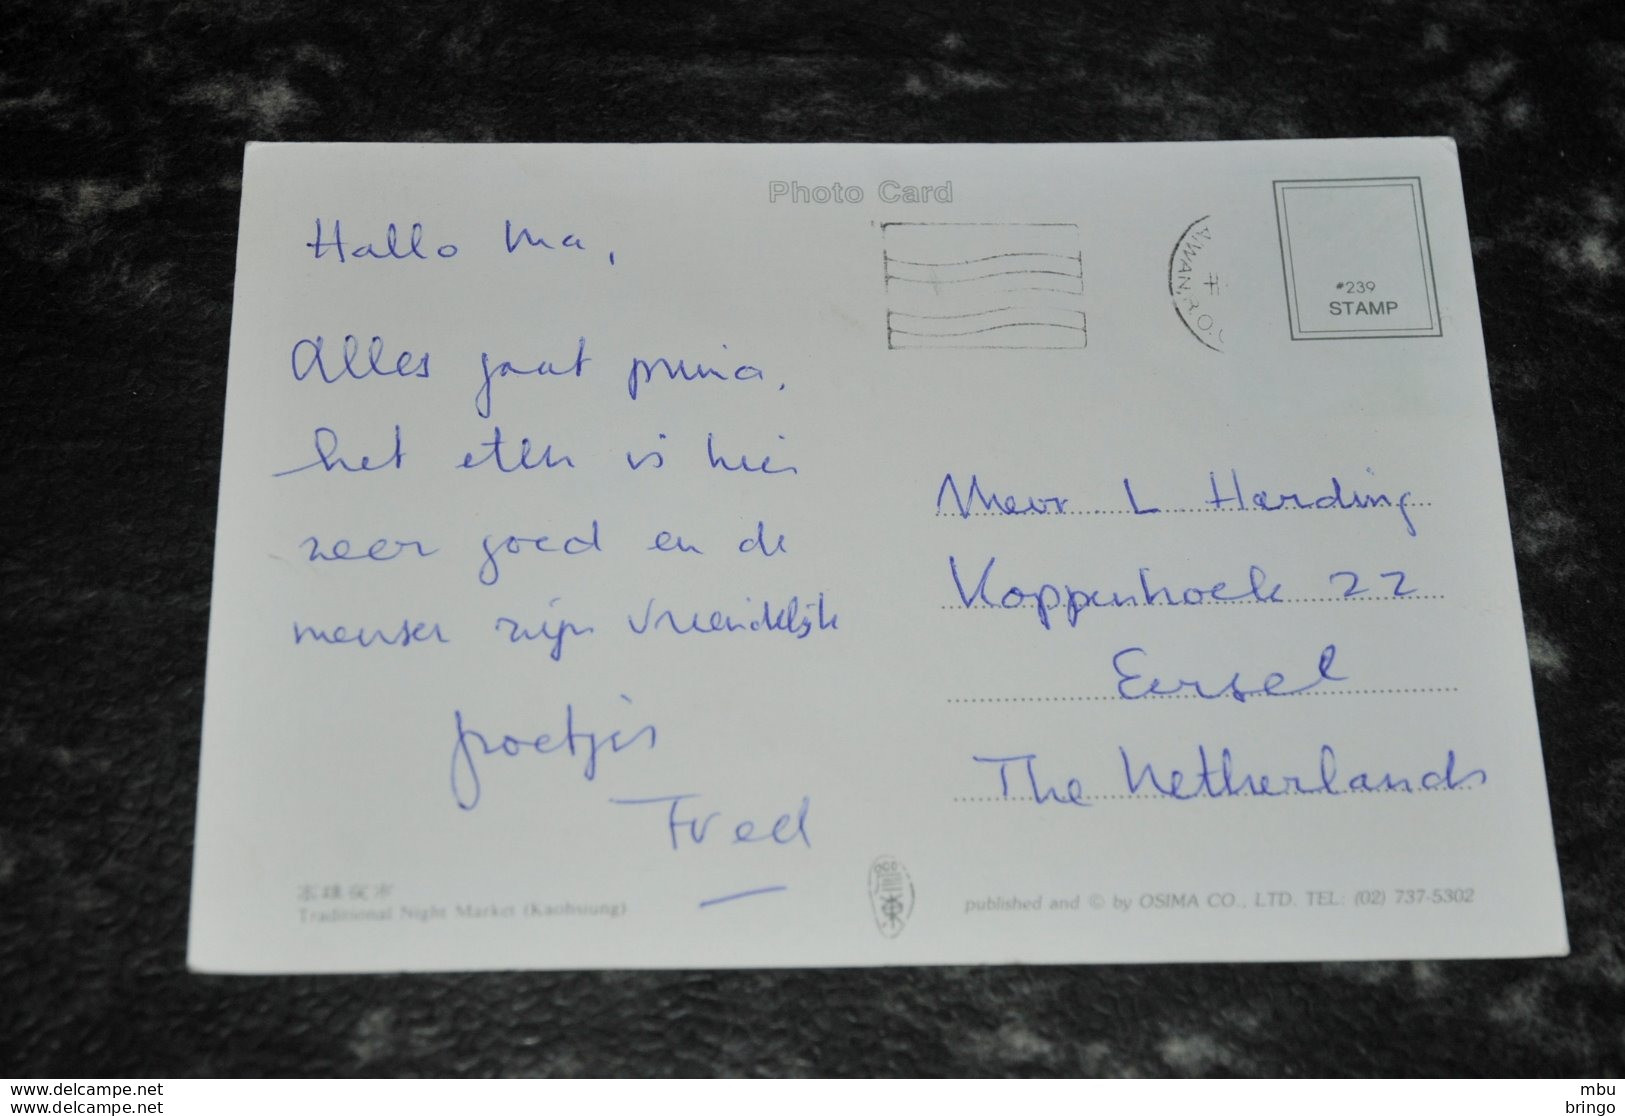 Photo Card
Hallo Ma,
Alles gaat prima,
het eten is hier
zeer goed en de
mensen zijn vriendelijk
groetjes
Fred
AIWAN, R.O.
#239
STAMP
Mevr. L Harding
Koppenhoek 22
Eersel
The Netherlands
Traditional Night Market (Kaohsiung)
published and © by OSIMA CO., LTD. TEL: (02) 737-5302
www.delcampe.net
www.delcampe.net
mbu
bringo